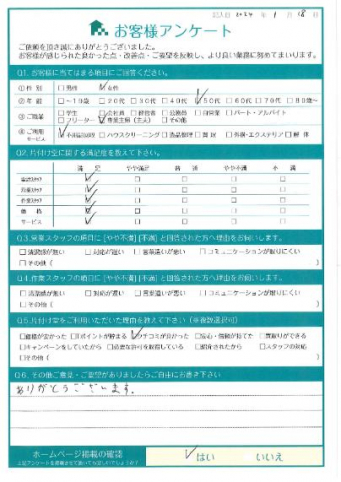 記入日 2024 年 1 月 18 日
お客様アンケート
ご依頼を頂き誠にありがとうございました。
お客様が感じられた良かった点・改善点・ご要望を反映し、より良い業務に努めてまいります。
Q1. お客様に当てはまる項目にご回答ください。
①性 別 □男性 ☑女性
②年 齢 □~19歳 □20代 □30代 □40代 ☑50代 □60代 □70代 □80歳~
③ご職業 □学生 □会社員 □経営者 □公務員 □自営業 □パート・アルバイト
□フリーター ☑専業主婦(主夫) □その他
④ご利用サービス ☑不用品回収 □ハウスクリーニング □遺品整理 □買取 □外構・エクステリア □解体
Q2. 片付け堂に関する満足度を教えて下さい。
満 足 やや満足 普 通 やや不満 不 満
電話スタッフ ☑ □ □ □ □
営業スタッフ ☑ □ □ □ □
作業スタッフ ☑ □ □ □ □
価 格 ☑ □ □ □ □
サービス ☑ □ □ □ □
Q3. 営業スタッフの項目に [やや不満] [不満] と回答された方へ理由をお伺いします。
□清潔感が無い □対応が遅い □言葉遣いが悪い □コミュニケーションが取りにくい
□その他 ( )
Q4. 作業スタッフの項目に [やや不満] [不満] と回答された方へ理由をお伺いします。
□清潔感が無い □対応が遅い □言葉遣いが悪い □コミュニケーションが取りにくい
□その他 ( )
Q5. 片付け堂をご利用いただいた理由を教えて下さい (※複数選択可)
□価格が安かった □ポイントが貯まる ☑クチコミが良かった □安心・信頼が持てた □買取りができる
□キャンペーンをしていたから □必要な許可を取得している □紹介されたから □スタッフの対応
□その他 ( )
Q6. その他ご意見・ご要望がありましたらご自由にお書き下さい
ありがとうございます。
ホームページ掲載の確認
☑はい いいえ